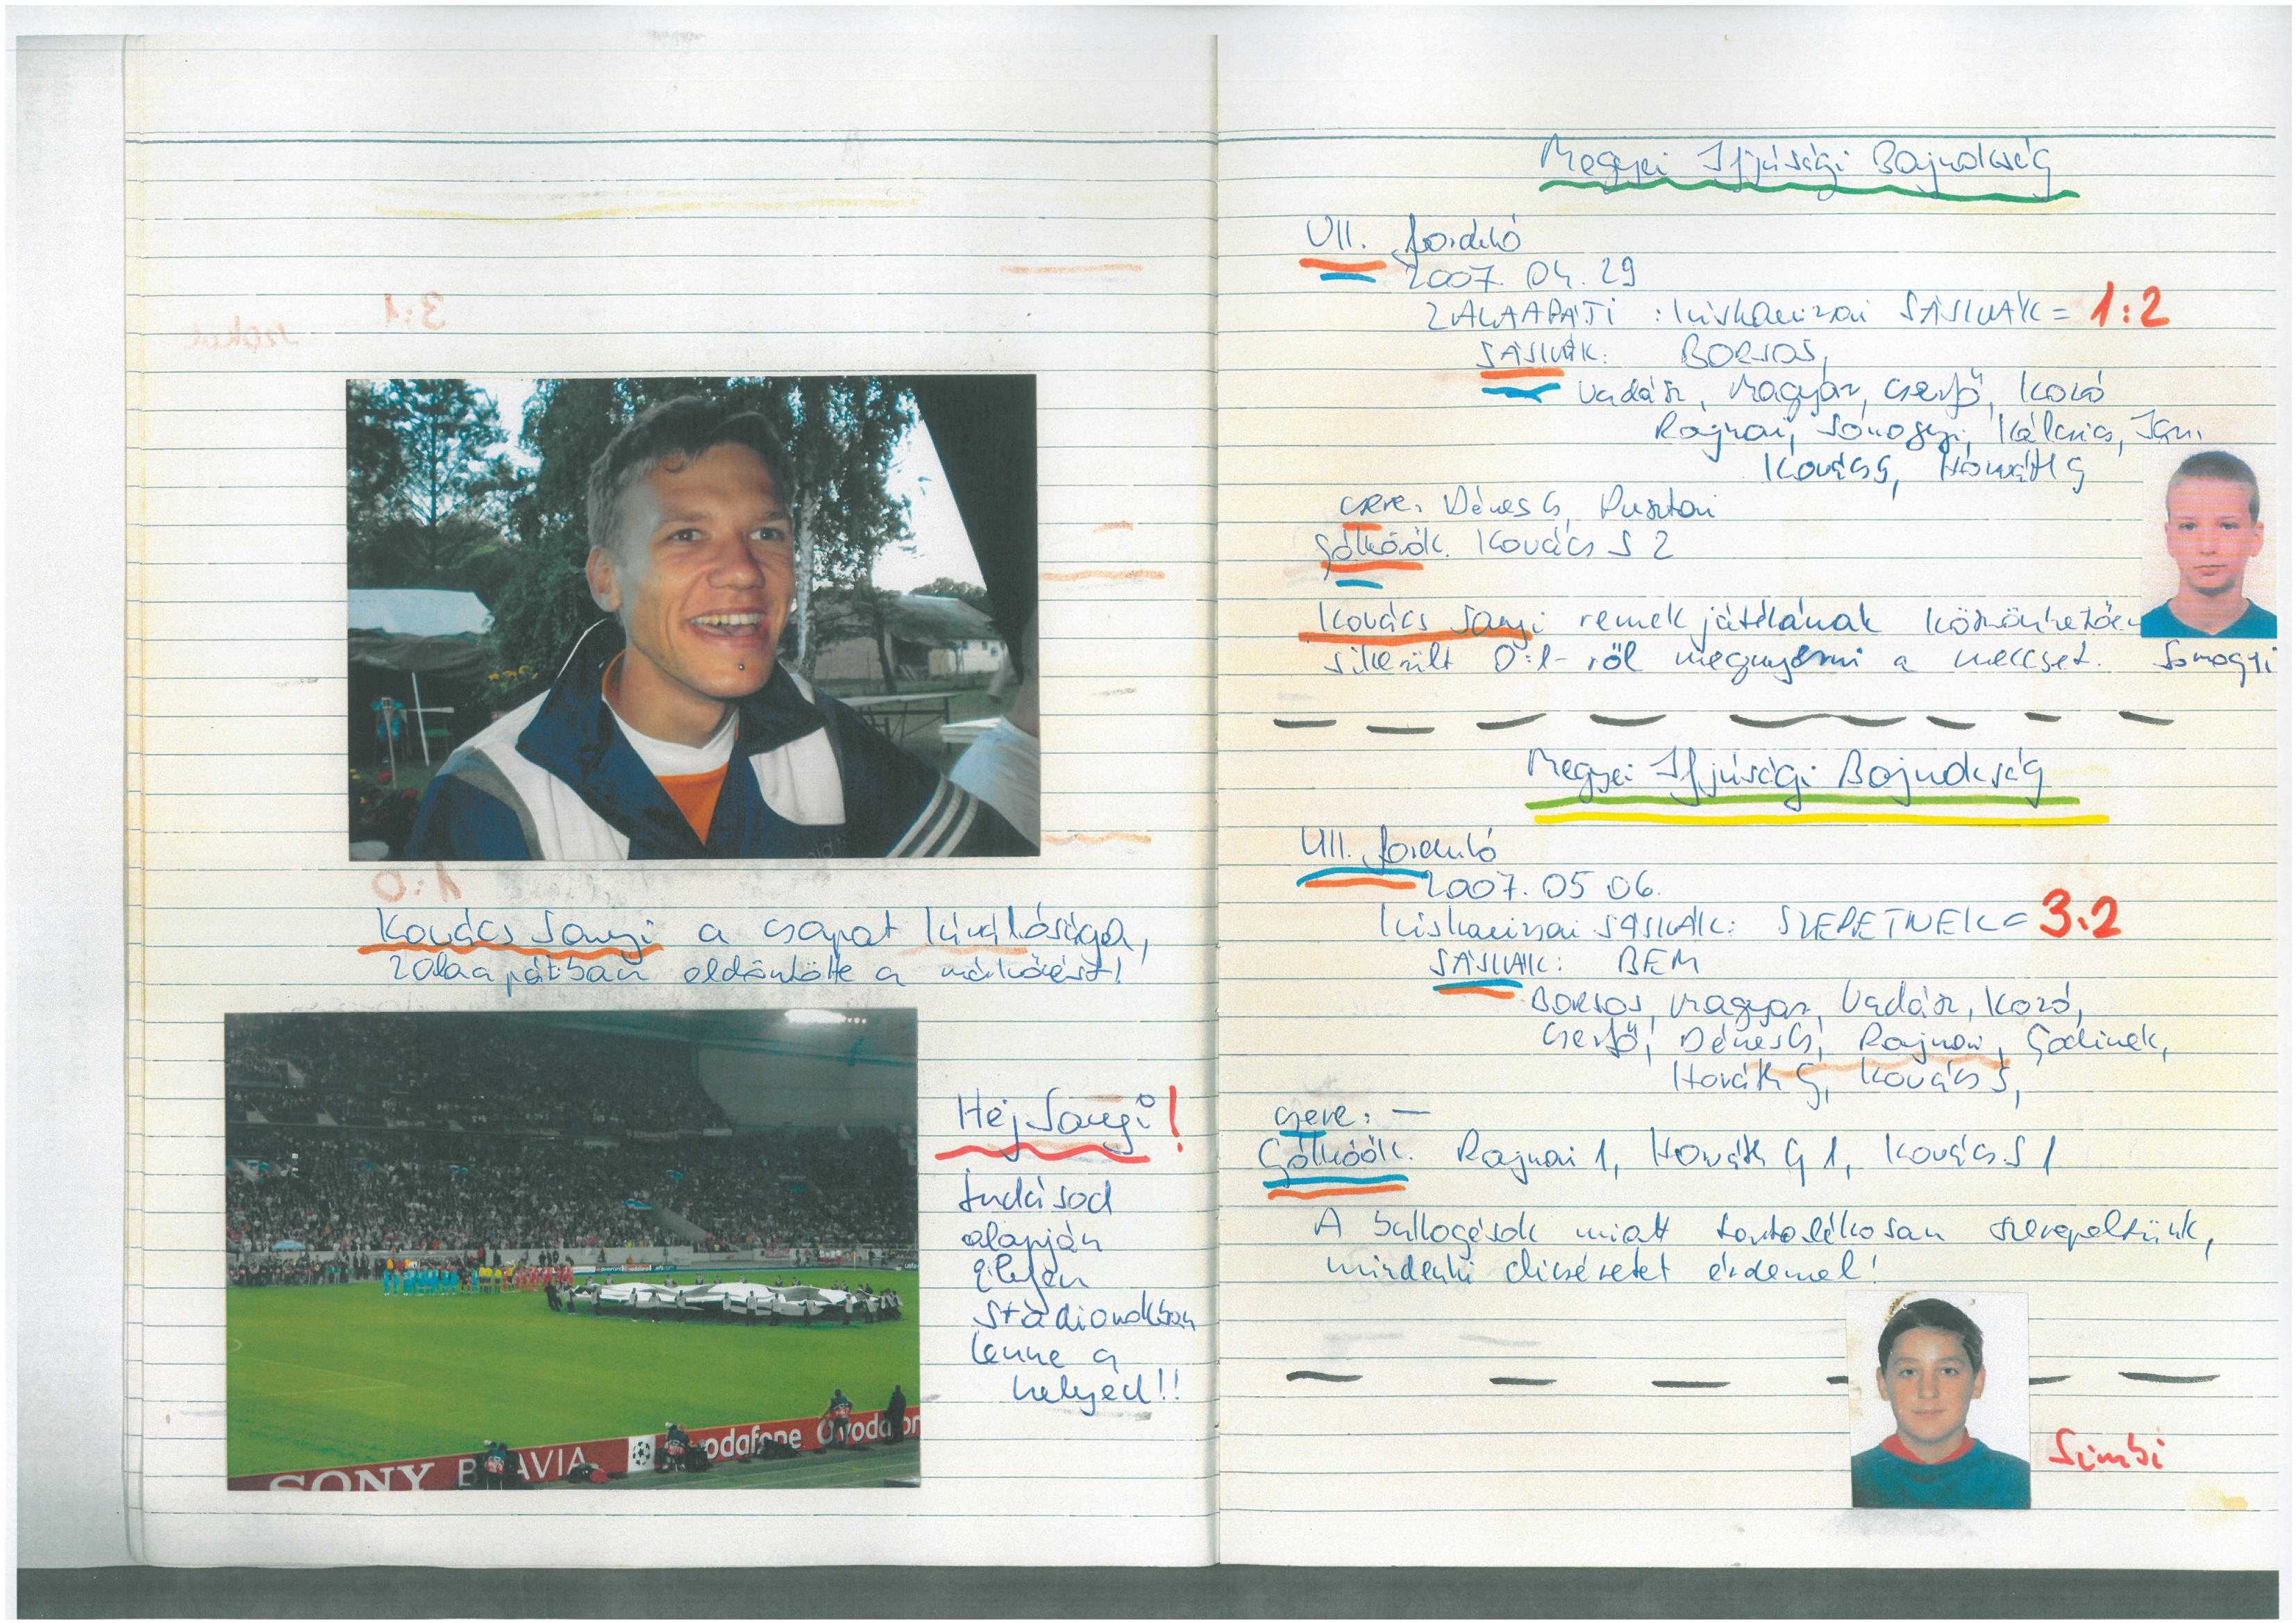 Kovács Sanyi a csapat kiválósága,
Zalaapátiban eldöntötte a mérkőzést!
SONY BRAVIA vodafone vodafon
Hej Sanyi!
tudásod
alapján
ilyen
stadionokban
lenne a
helyed!!
Megyei Ifjúsági Bajnokság
VII. forduló
2007. 04. 29
ZALAAPÁTI : Kiskanizsai SÁSKÁK = 1:2
SÁSKÁK: BORSOS,
Vadász, Magyar, Cserfő, Kozó
Rajnai, Somogyi, Kálcsics,
Kovács S, Horváth G
csere: Dénes G, Pusztai
gólkövők. Kovács S 2
Kovács Sanyi remek játékának köszönhetően
sikerült 0:1-ről megnyerni a meccset.
Somogyi
Megyei Ifjúsági Bajnokság
VIII. forduló
2007. 05 06.
Kiskanizsai SÁSKÁK: SZEPETNEK = 3:2
SÁSKÁK: BEM
BORSOS, Magyar, Vadász, Kozó,
Cserfő, Dénes G, Rajnai, Godinek,
Horváth G, Kovács S,
csere: —
Gólkövők. Rajnai 1, Horváth G 1, Kovács S 1
A bullogások miatt tartalékosan szerepeltünk,
mindenki dicséretet érdemel!
Simbi